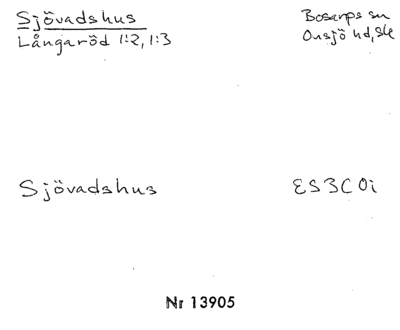 Sjövadshus
Långaröd 1:2, 1:3
Bosarps sn
Onsjö hd, Sk
Sjövadshus
ES3C0i
Nr 13905